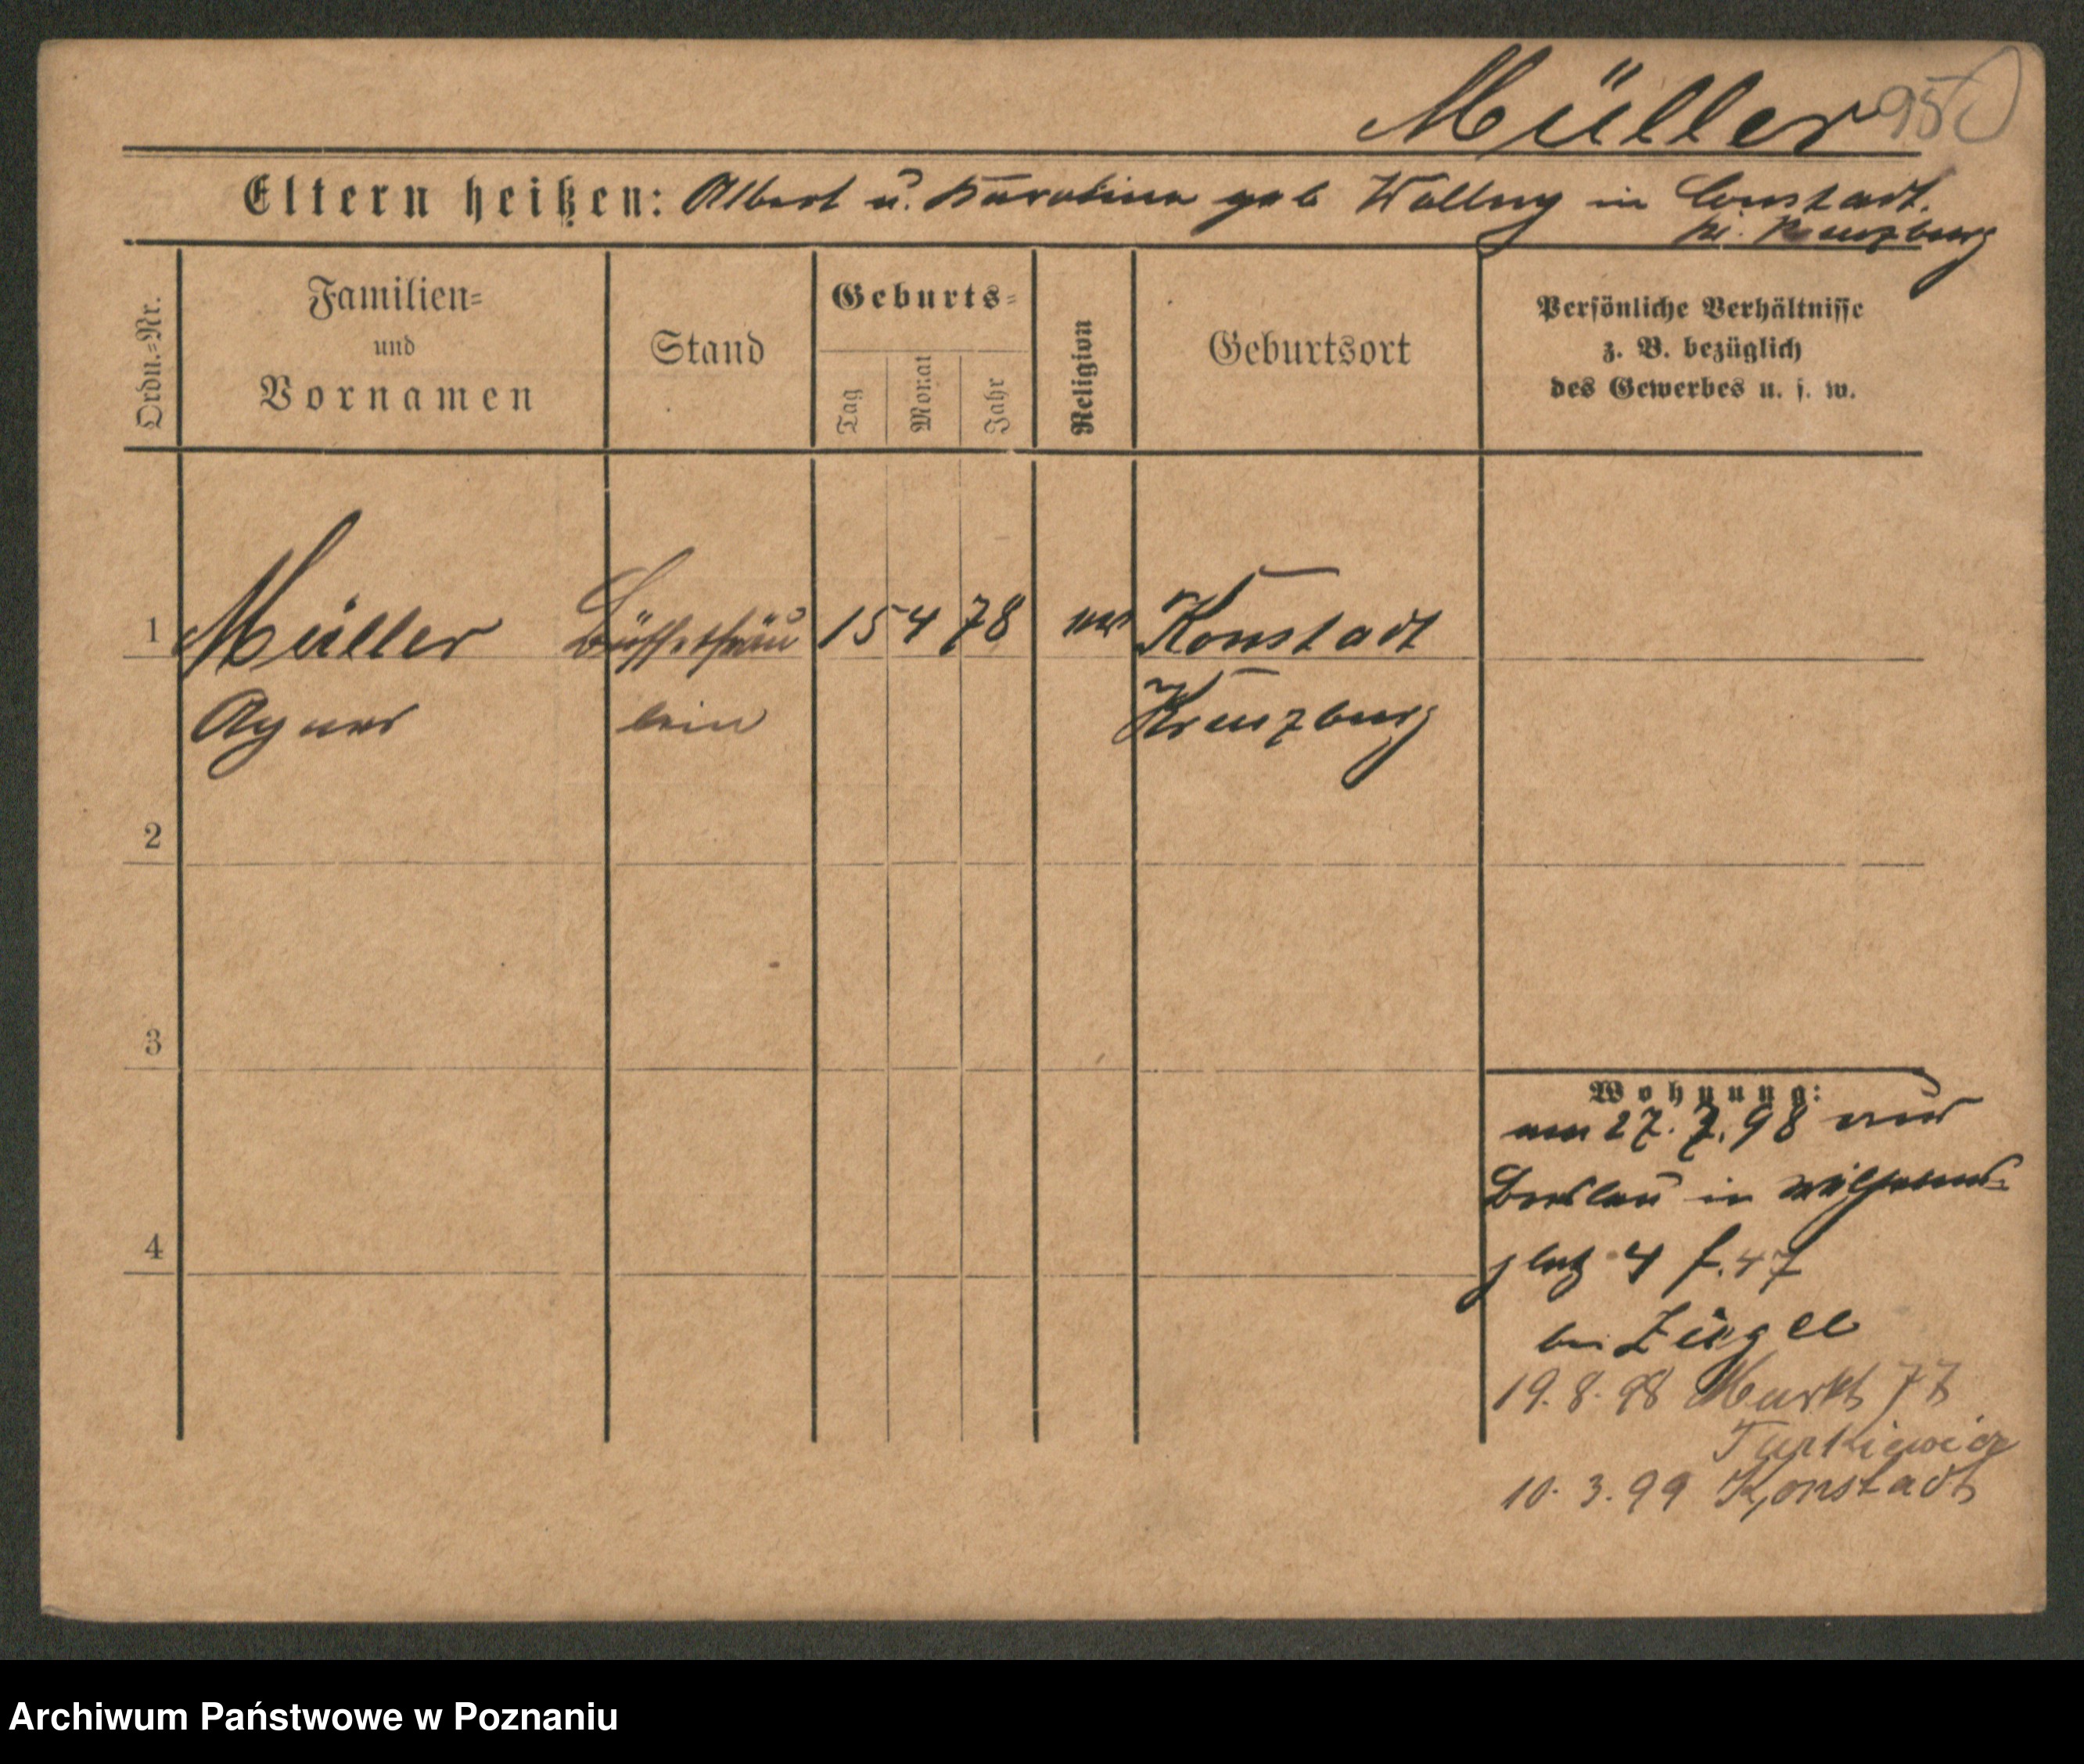 Müller 95
Eltern heißen: Albert u. Karolina geb Wallny in Constadt.
Kr. Kreuzburg
Ordn.=Nr.
Familien=
und
Vornamen
Stand
Geburts=
Tag
Monat
Jahr
Religion
Geburtsort
Persönliche Verhältnisse
z. B. bezüglich
des Gewerbes u. s. w.
1 Müller Büffetfräu 15 4 78 Konstadt
Agnes lein Kreuzburg
2
3
4
Wohnung:
am 27. 7. 98 aus
Breslau in Wilhelms=
platz 4 f. 47
bei Ziegel
19. 8. 98 Markt 77
10. 3. 99 Konstadt
Archiwum Państwowe w Poznaniu